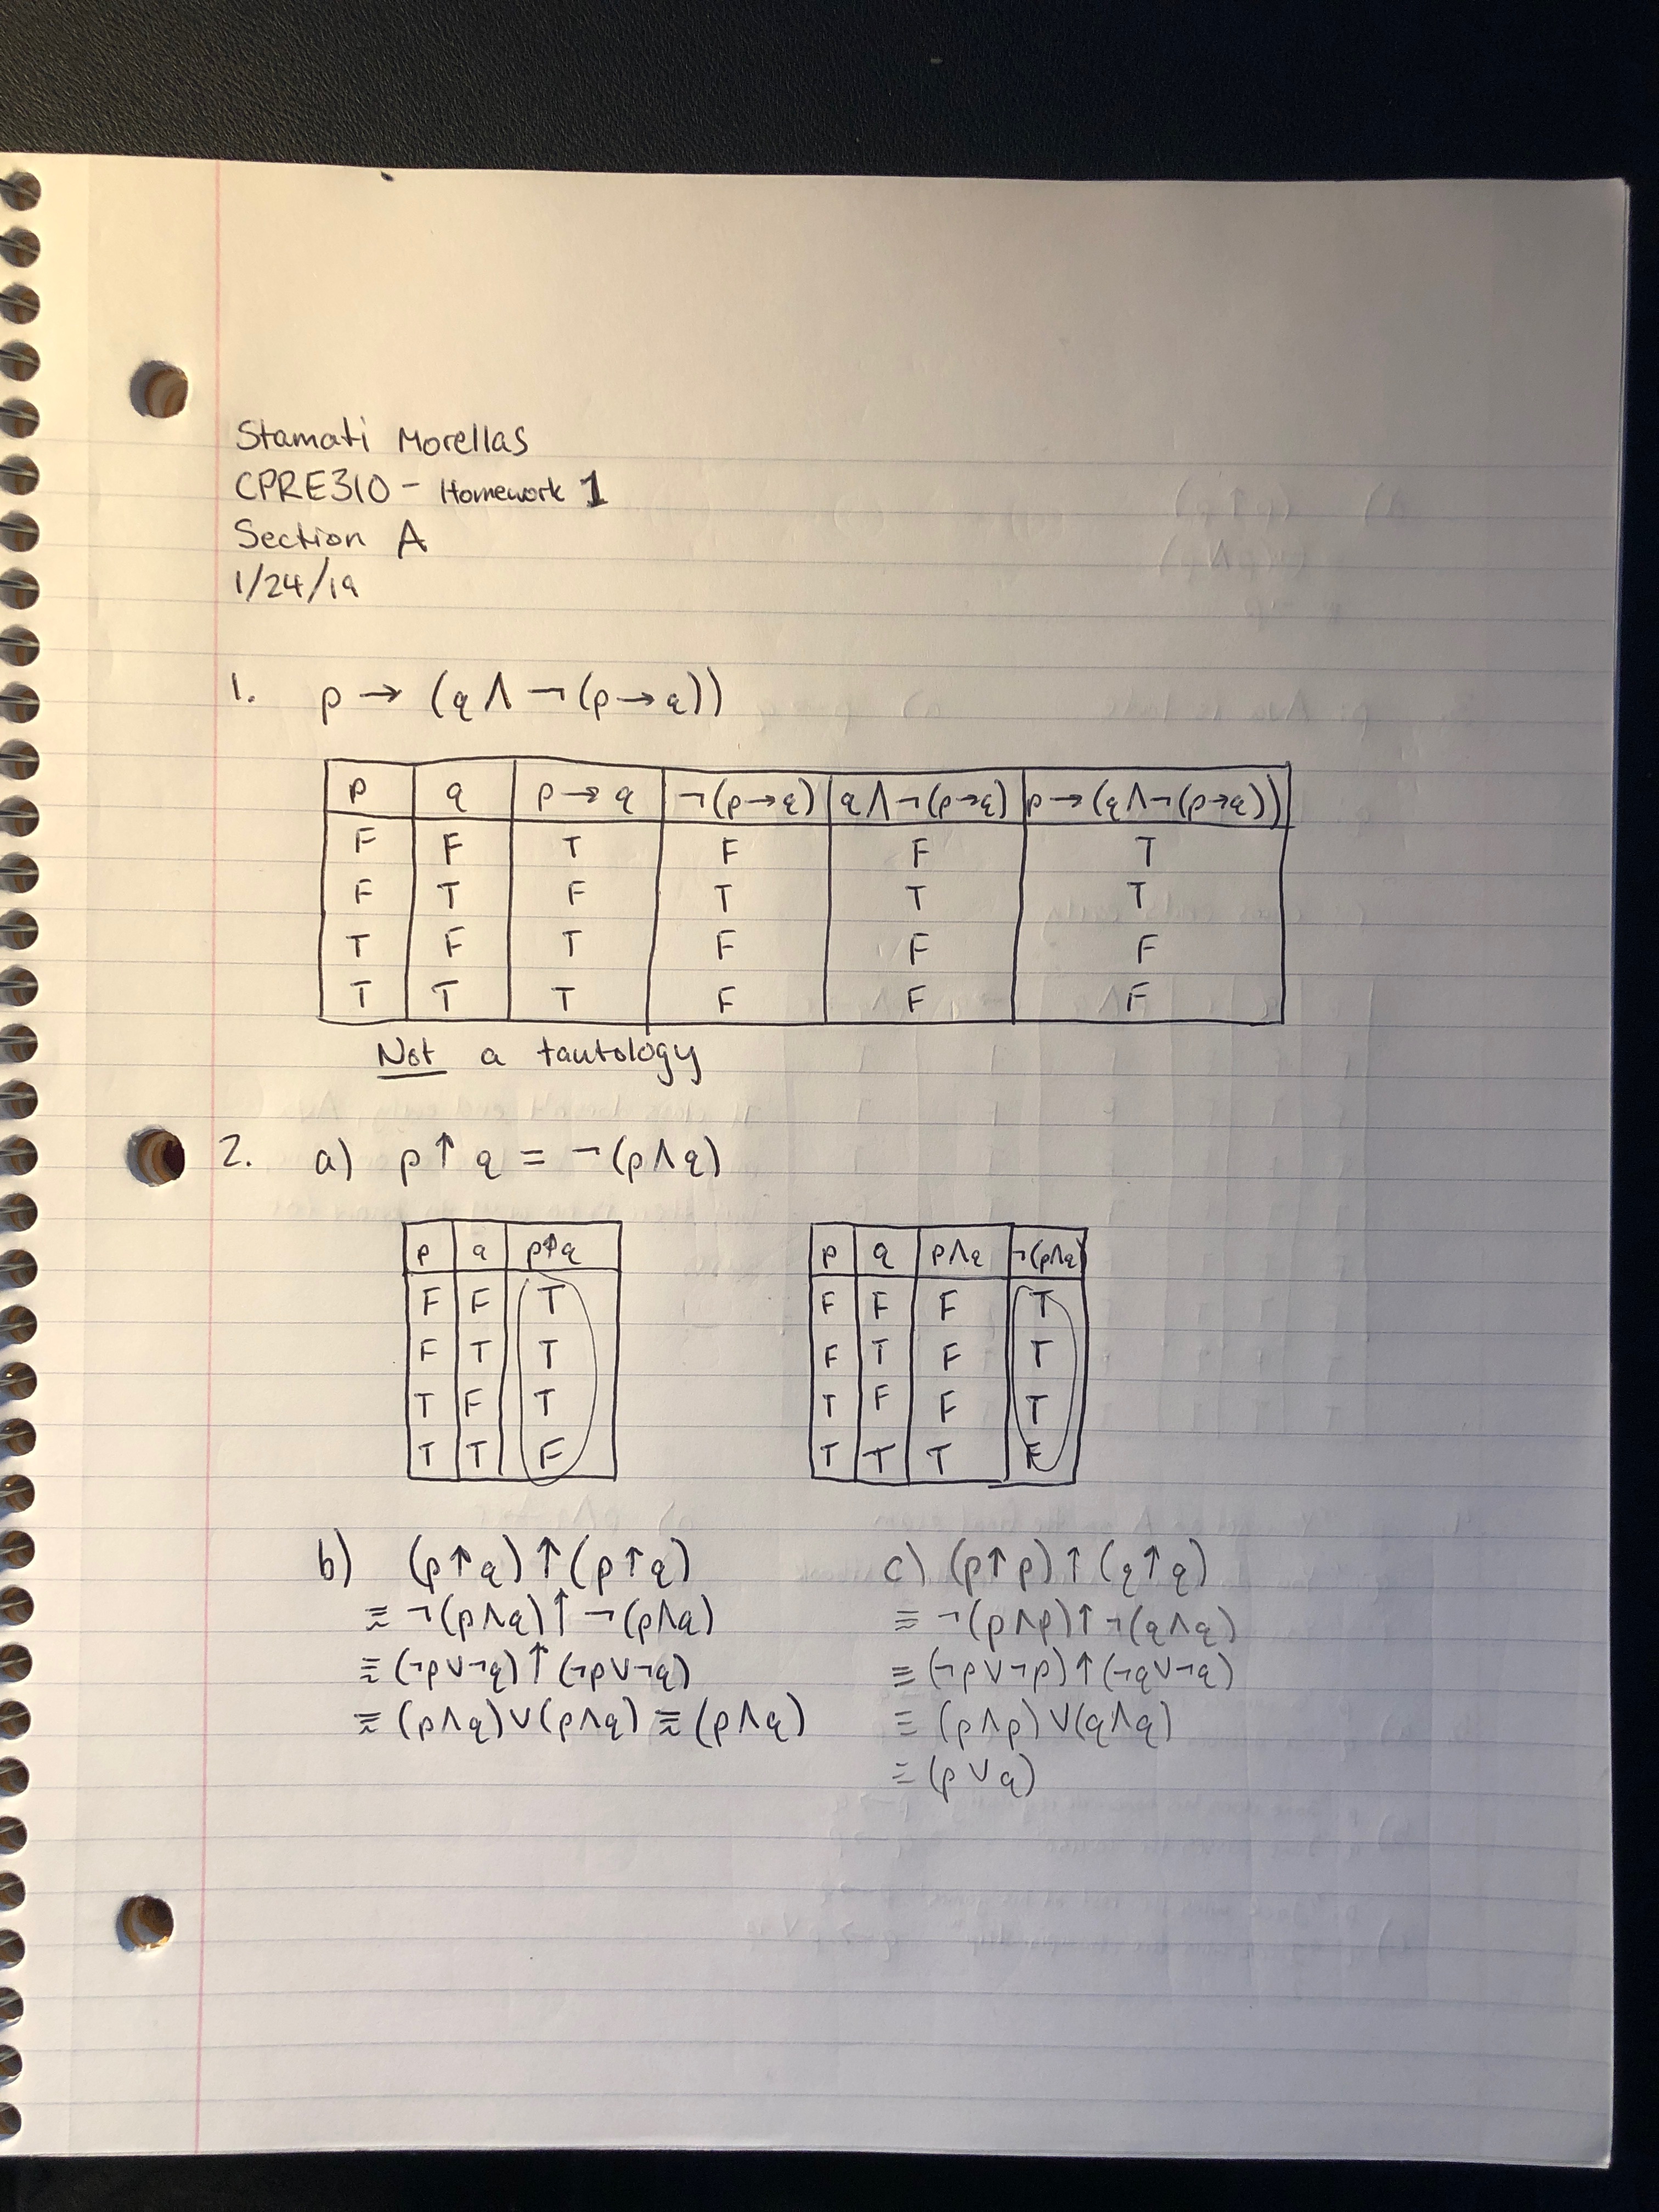 Stamati Morellas
CPRE310 - Homework 1
Section A
1/24/19
1. p → (q ∧ ¬(p→q))
p q p→q ¬(p→q) q∧¬(p→q) p→(q∧¬(p→q))
F F T F F T
F T F T T T
T F T F F F
T T T F F F
Not a tautology
2. a) p↑q = ¬(p∧q)
p q p↑q p q p∧q ¬(p∧q)
F F T F F F T
F T T F T F T
T F T T F F T
T T F T T T F
b) (p↑q)↑(p↑q)
≡ ¬(p∧q)↑¬(p∧q)
≡ (¬p∨¬q)↑(¬p∨¬q)
≡ (p∧q)∨(p∧q) ≡ (p∧q)
c) (p↑p)↑(q↑q)
≡ ¬(p∧p)↑¬(q∧q)
≡ (¬p∨¬p)↑(¬q∨¬q)
≡ (p∧p)∨(q∧q)
≡ (p∨q)